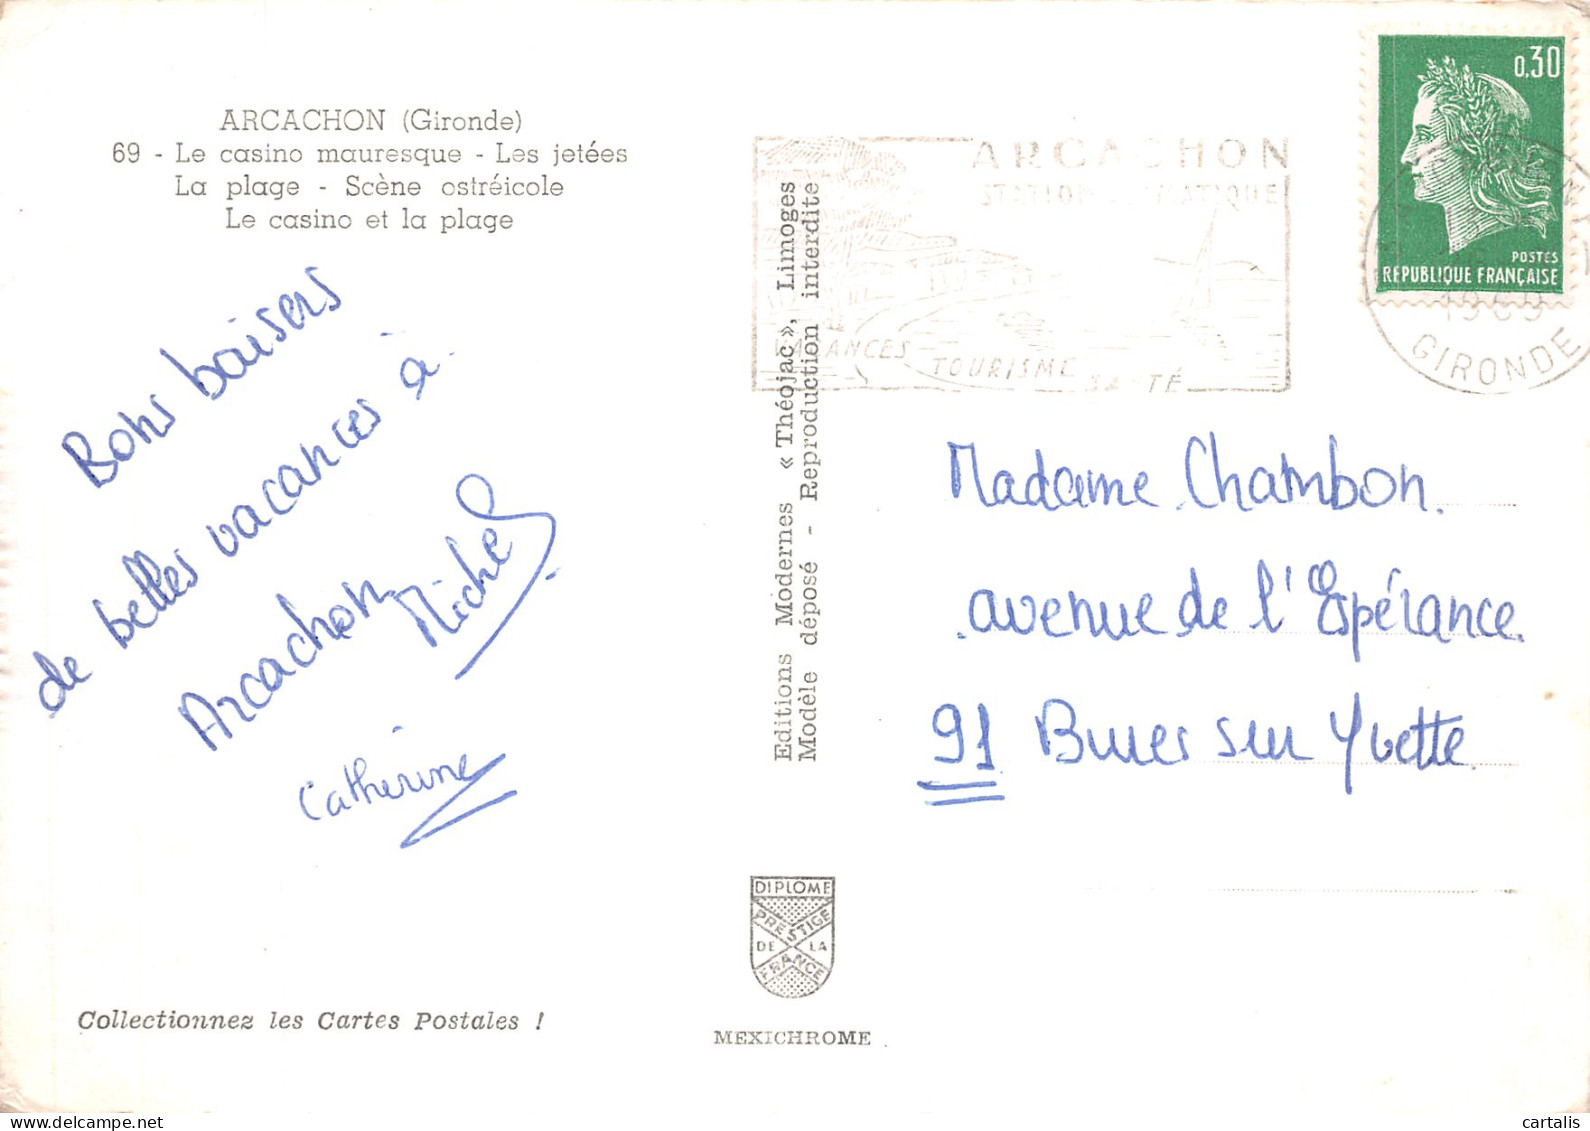 ARCACHON (Gironde)
69 - Le casino mauresque - Les jetées
La plage - Scène ostréicole
Le casino et la plage
Bons baisers
de belles vacances à
Arcachon
Michel
Catherine
Collectionnez les Cartes Postales !
Editions Modernes « Théojac », Limoges
Modèle déposé - Reproduction interdite
DIPLOME
PRESTIGE
DE LA
FRANCE
MEXICHROME
ARCACHON
STATION
TOURISME
0,30
POSTES
REPUBLIQUE FRANÇAISE
1969
GIRONDE
Madame Chambon.
avenue de l'Espérance
91 Bures sur Yvette
cartalis